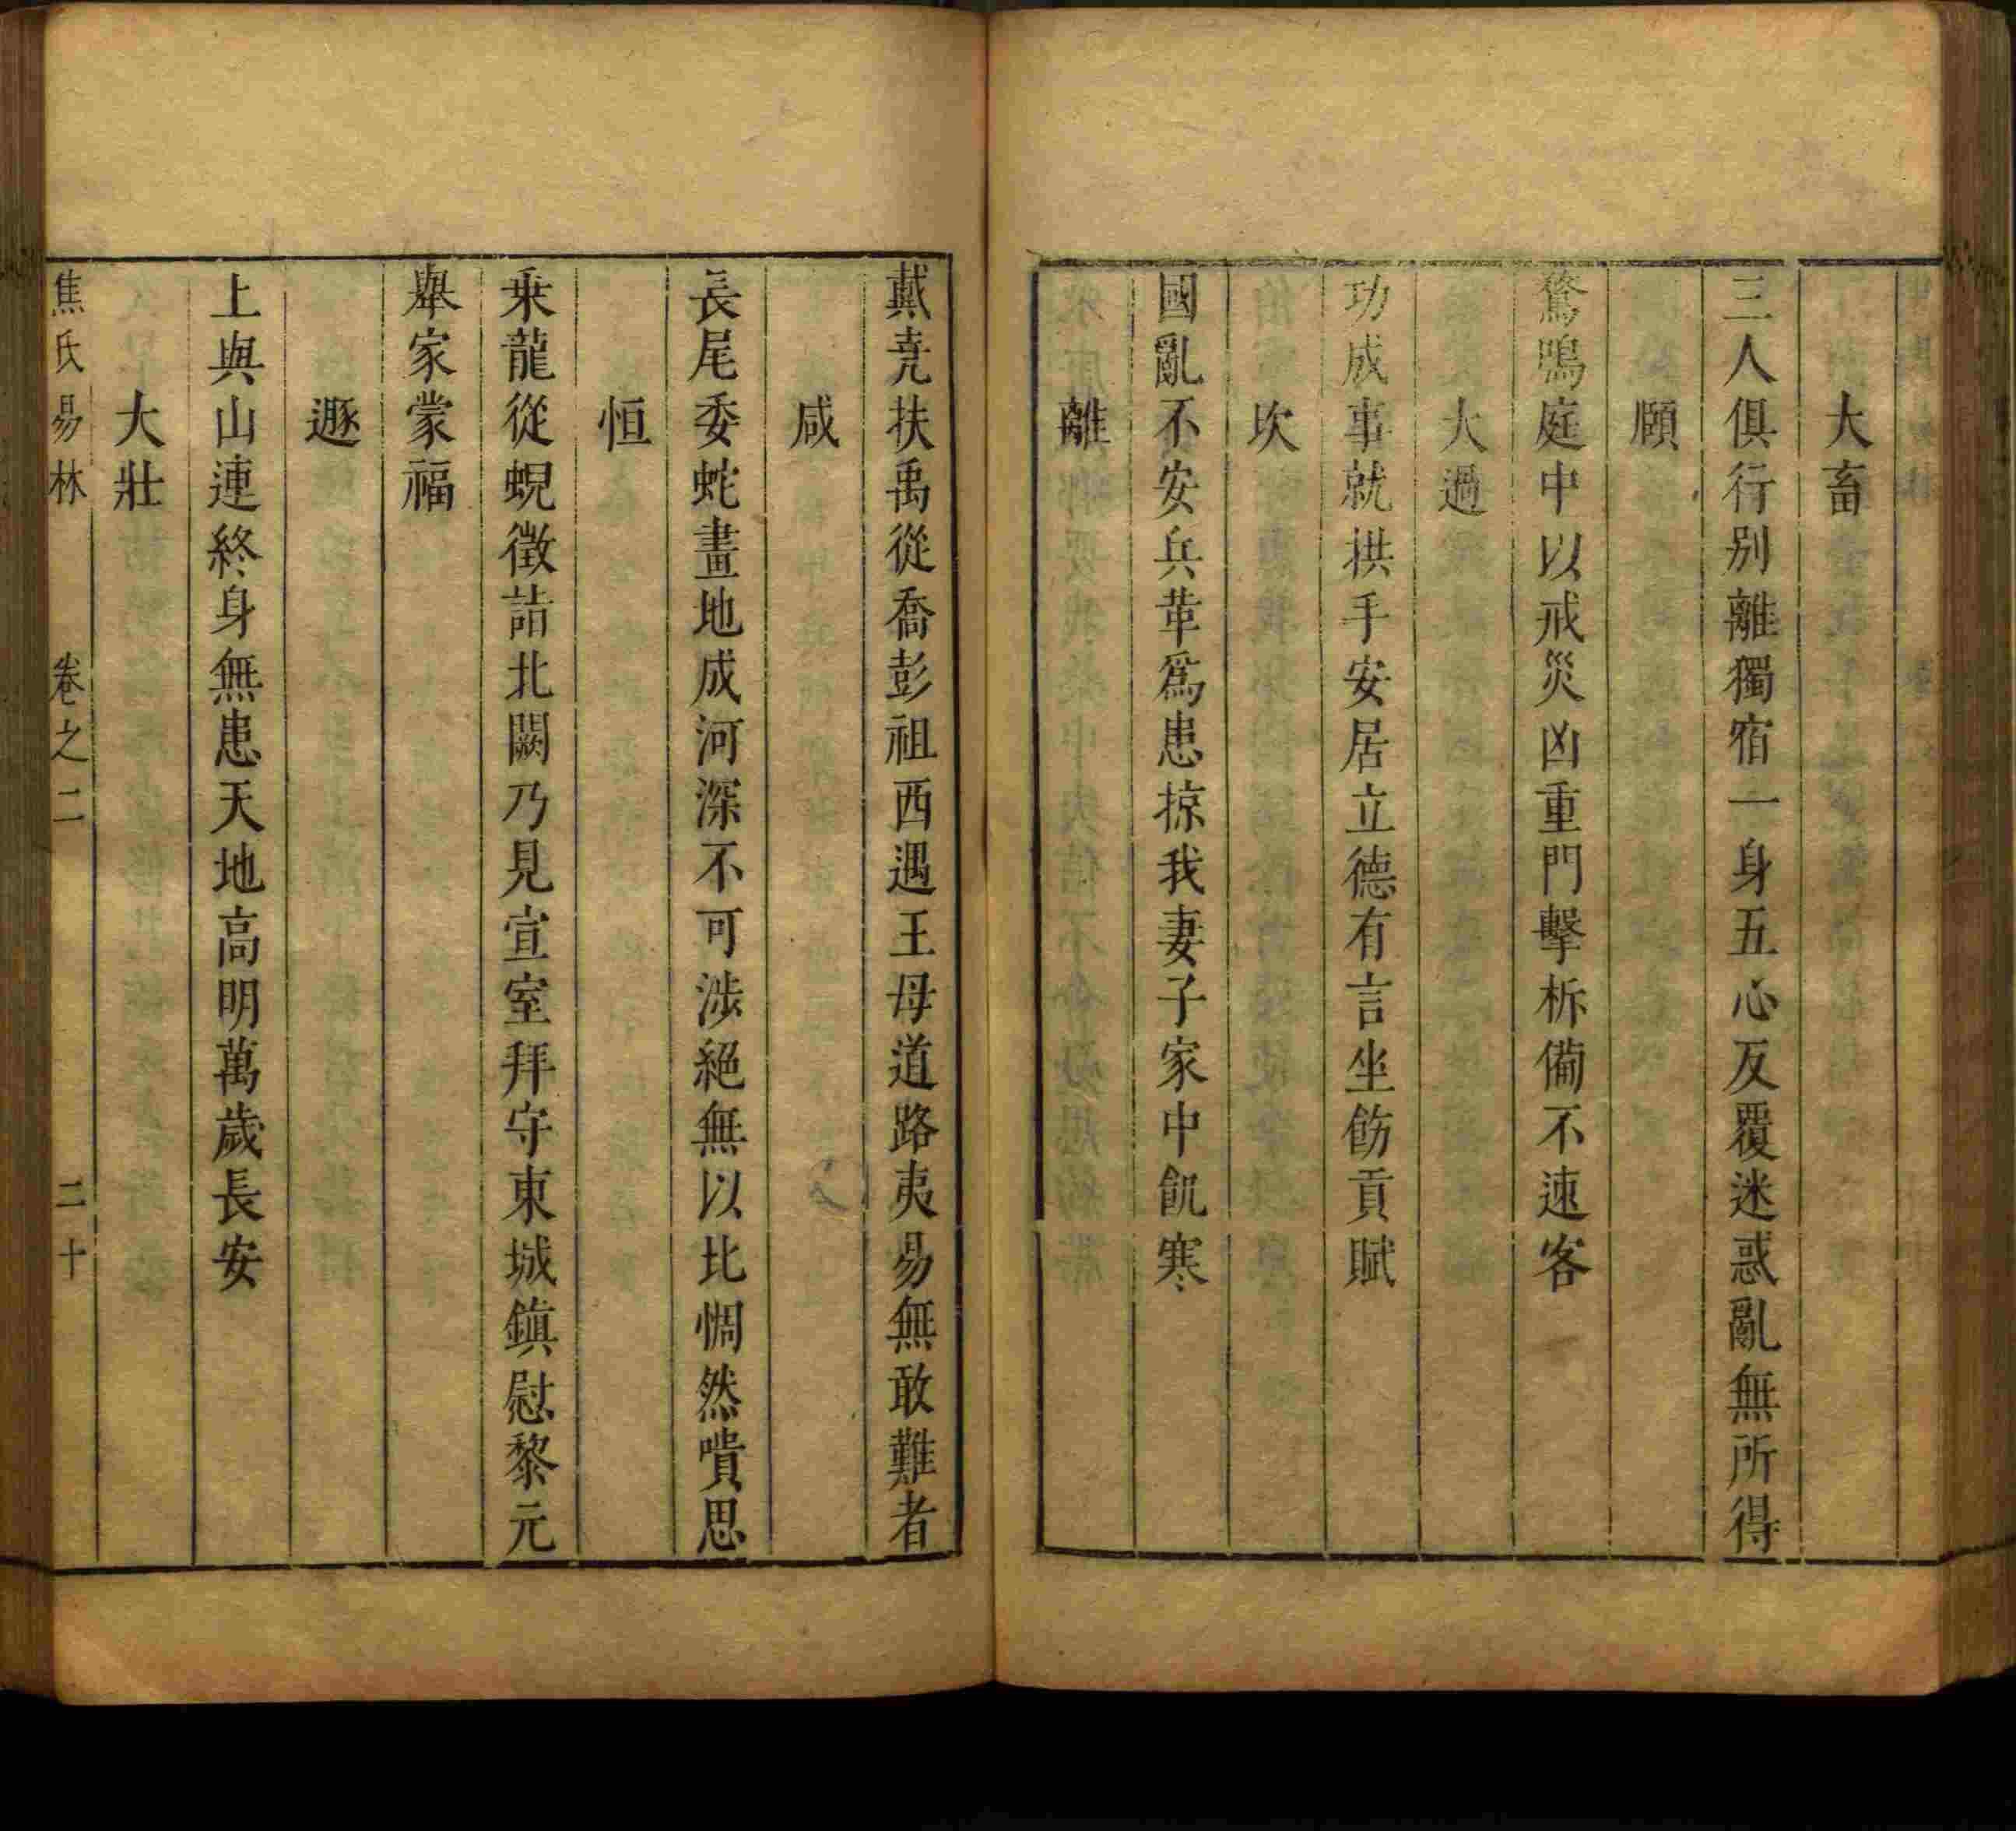 大畜
三人俱行別離獨宿一身五心反覆迷惑亂無所得
頤
驚鴞庭中以戒災凶重門擊柝備不速客
大過
功成事就拱手安居立德有言坐飭貢賦
坎
國亂不安兵革爲患掠我妻子家中飢寒
離
戴尭扶禹從喬彭祖西遇王母道路夷易無敢難者
咸
長尾委蛇畫地成河深不可涉絕無以比惆然嘳思
恒
乗龍從蜺徵詣北闕乃見宣室拜守東城鎮慰黎元
舉家蒙福
遯
上與山連終身無患天地高明萬歲長安
大壯
焦氏易林 卷之二 二十